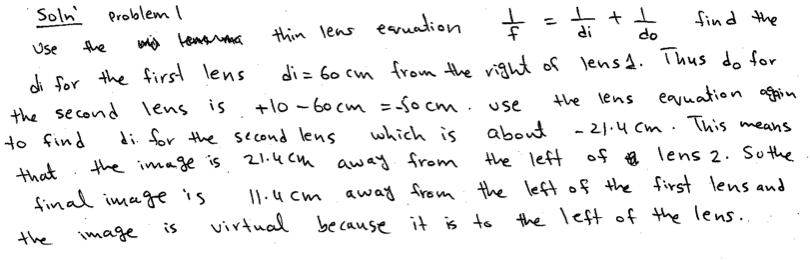 Soln' Problem 1
Use the thin lens equation 1/f = 1/di + 1/do find the
di for the first lens di = 60 cm from the right of lens 1. Thus do for
the second lens is +10 - 60 cm = -50 cm. use the lens equation again
to find di for the second lens which is about - 21.4 cm. This means
that the image is 21.4 cm away from the left of lens 2. So the
final image is 11.4 cm away from the left of the first lens and
the image is virtual because it is to the left of the lens..